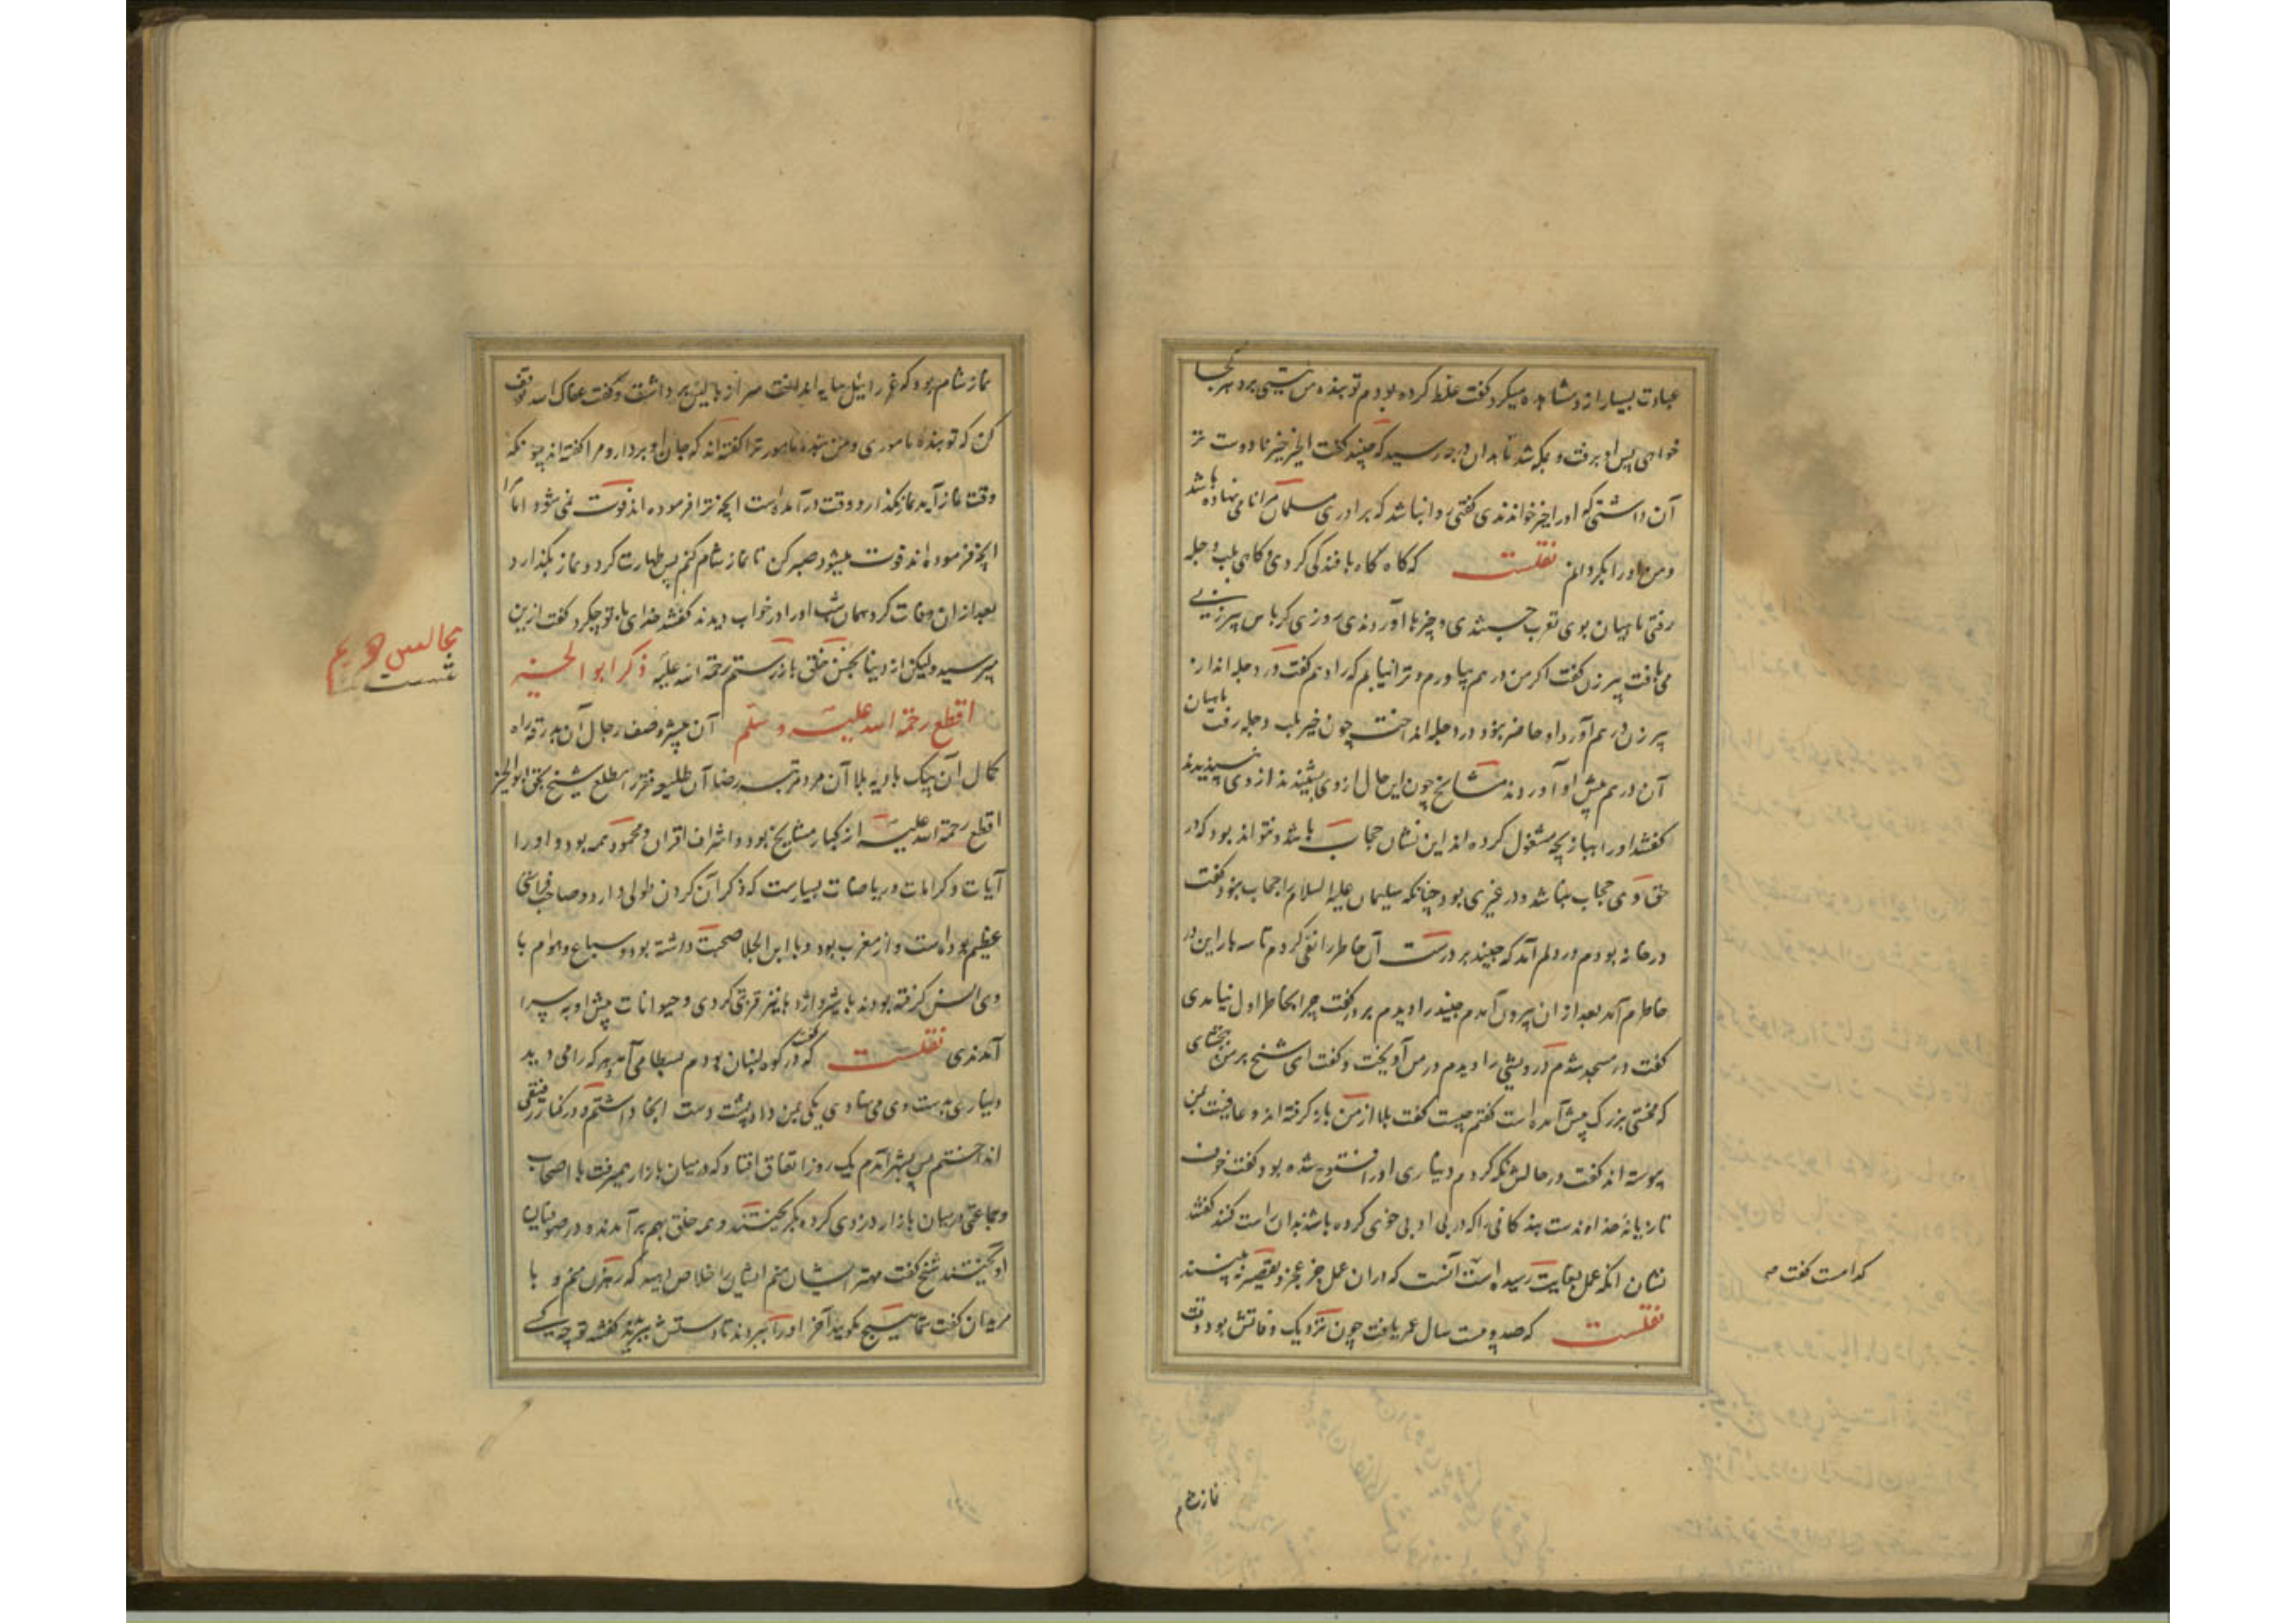 عبادت بسیار از و مشاهده میکرد گفت غلط کرده بودم تو بنده من نیستی برو هر کجا
خواهی پس او برفت و بمکه شد تا بدان درجه رسید که جنید گفت الخیر خیرنا دوست تر
آن داشتی که او را خیر خواندندی گفتی روا نباشد که برادری مسلمان مرا نامی نهاده باشد
و من او را بگردانم نقلست که گاه گاه بافندگی کردی و گاهی بلب دجله
رفتی ماهیان بوی تقرب جستندی و چیزها آوردندی روزی کرباس پیرزنی
می بافت پیرزن گفت اگر من درم بیاورم و ترا نیابم کرا دهم گفت در دجله انداز
پیرزن درم آورد او حاضر نبود در دجله انداخت چون خیر بلب دجله رفت ماهیان
آن درم پیش او آوردند مشایخ چون این حال از وی بشنیدند از وی نپسندیدند
گفتند او را ببازیچه مشغول کرده اند این نشان حجاب باشد و نتواند بود که در
حق وی حجاب نباشد و در غیری بود چنانکه سلیمان علیه السلام را حجاب نبود و گفت
در خانه بودم در دلم آمد که جنید بر درست آن خاطر را نفی کردم تا سه بار این در
خاطرم آمد بعد از ان بیرون آمدم جنید را دیدم بر در گفت چرا بخاطر اول نیامدی
گفت در مسجد شدم درویشی را دیدم در من آویخت و گفت ای شیخ بر من ببخشای
که محنتی بزرگ پیش آمده است گفتم چیست گفت بلا از من باز گرفته اند و عافیت بمن
پیوسته اند گفت در حالش نگه کردم دیناری او را فتوح شده بود گفت خوف
تازیانه خداوندست بندگانی را که در بی ادبی خوی کرده باشند بدان راست کنند گفتند
نشان آنکه عمل بغایت رسیده است آنست که در ان عمل جز عجز و تقصیر نه بینند
نقلست که صد و بیست سال عمر یافت چون نزدیک وفاتش بود وقت
که امت گفت مه
نماز شام
نماز شام بود که عزراییل سایه انداخت سر از بالین برداشت و گفت عفاک الله توقف
کن که تو بنده ماموری و من بنده مامور ترا گفته اند که جان او بردار و مرا گفته اند چونکه
وقت نماز آید نماز بگذار و وقت در آمده است آنچه ترا فرموده اند فوت نمی شود اما مرا
آنچه فرموده اند فوت میشود صبر کن تا نماز شام کنم پس طهارت کرد و نماز بگذارد
بعد از ان وفات کرد همان شب او را در خواب دیدند گفتند خدای با تو چکرد گفت ازین
مپرسید ولیکن از دنیا نجس خلقی باز رستم رحمة الله علیه ذکر ابو الخیر
اقطع رحمة الله علیه و سلم آن پیشرو صف رجال آن بدرقه راه
کمال آن پیک بادیه بلا آن مرد مرتبه رضا آن طلیعه فقر را مطلع شیخ بحق ابو الخیر
اقطع رحمة الله علیه از کبار مشایخ بود و اشراف اقران و محمود همه بود و او را
آیات و کرامات و ریاضات بسیارست که ذکر آن کردن طولی دارد و صاحب فراستی
عظیم بوده است و از مغرب بود و با ابن الجلا صحبت داشته بود و سباع و هوام با
وی انس گرفته بودند با شیر و اژدها نیز قربتی کردی و حیوانات پیش او بسیار
آمدندی نقلست که گفت در کوه لبنان بودم سلطان می آمد هر که را می دید
دیناری بدست وی می نهادی یکی بمن داد پشت دست آنجا داشتم و در کنار رفیقی
انداختم پس بشهر آمدم یک روز اتفاق افتاد که در میان بازار میرفت با اصحاب
و جماعتی در میان بازار دزدی کرده بگریختند و همه خلق بهم بر آمدند و در صوفیان
آویختند شیخ گفت مهتر ایشان منم ایشان را خلاص دهید که رهزن منم و با
مریدان گفت شما هیچ مگویید آخر او را ببردند تا دستش ببرند گفتند تو چه کسی
مجالس